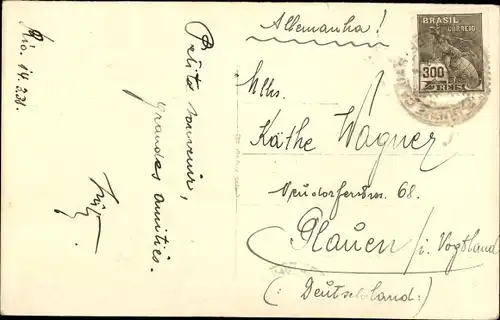 Rio. 14.2.31.
Petits souvenir,
grandes amitiés.
Allemanha!
BRASIL
CORREIO
300
REIS
Käthe Wagner
Neudorferstr. 68.
Plauen i. Vogtland
(: Deutschland :)